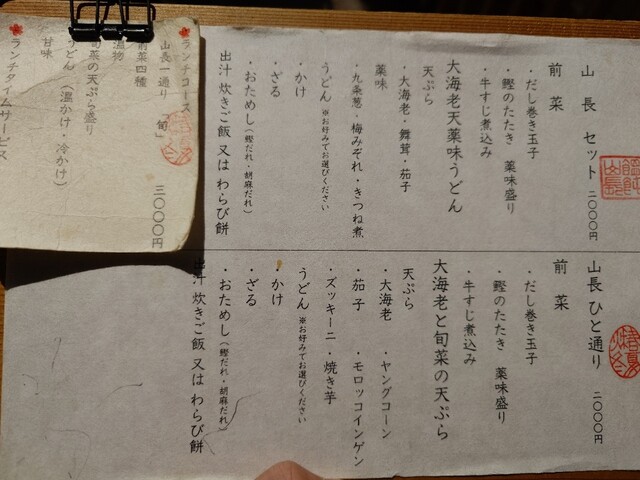 山長 セット 二〇〇〇円
前菜
・だし巻き玉子
・鰹のたたき 薬味盛り
・牛すじ煮込み
大海老天薬味うどん
天ぷら
・大海老・舞茸・茄子
薬味
・九条葱・梅みぞれ・きつね煮
うどん ※お好みでお選びください
・かけ
・ざる
・おためし(鰹だれ・胡麻だれ)
出汁 炊きご飯 又は わらび餅
山長 ひと通り 二〇〇〇円
前菜
・だし巻き玉子
・鰹のたたき 薬味盛り
・牛すじ煮込み
大海老と旬菜の天ぷら
天ぷら
・大海老 ・ヤングコーン
・茄子 ・モロッコインゲン
・ズッキーニ ・焼き芋
うどん ※お好みでお選びください
・かけ
・ざる
・おためし(鰹だれ・胡麻だれ)
出汁 炊きご飯 又は わらび餅
ランチコース
山長一通り 旬 三〇〇〇円
前菜四種
温物
旬菜の天ぷら盛り
うどん (温かけ・冷かけ)
甘味
ランチタイムサービス